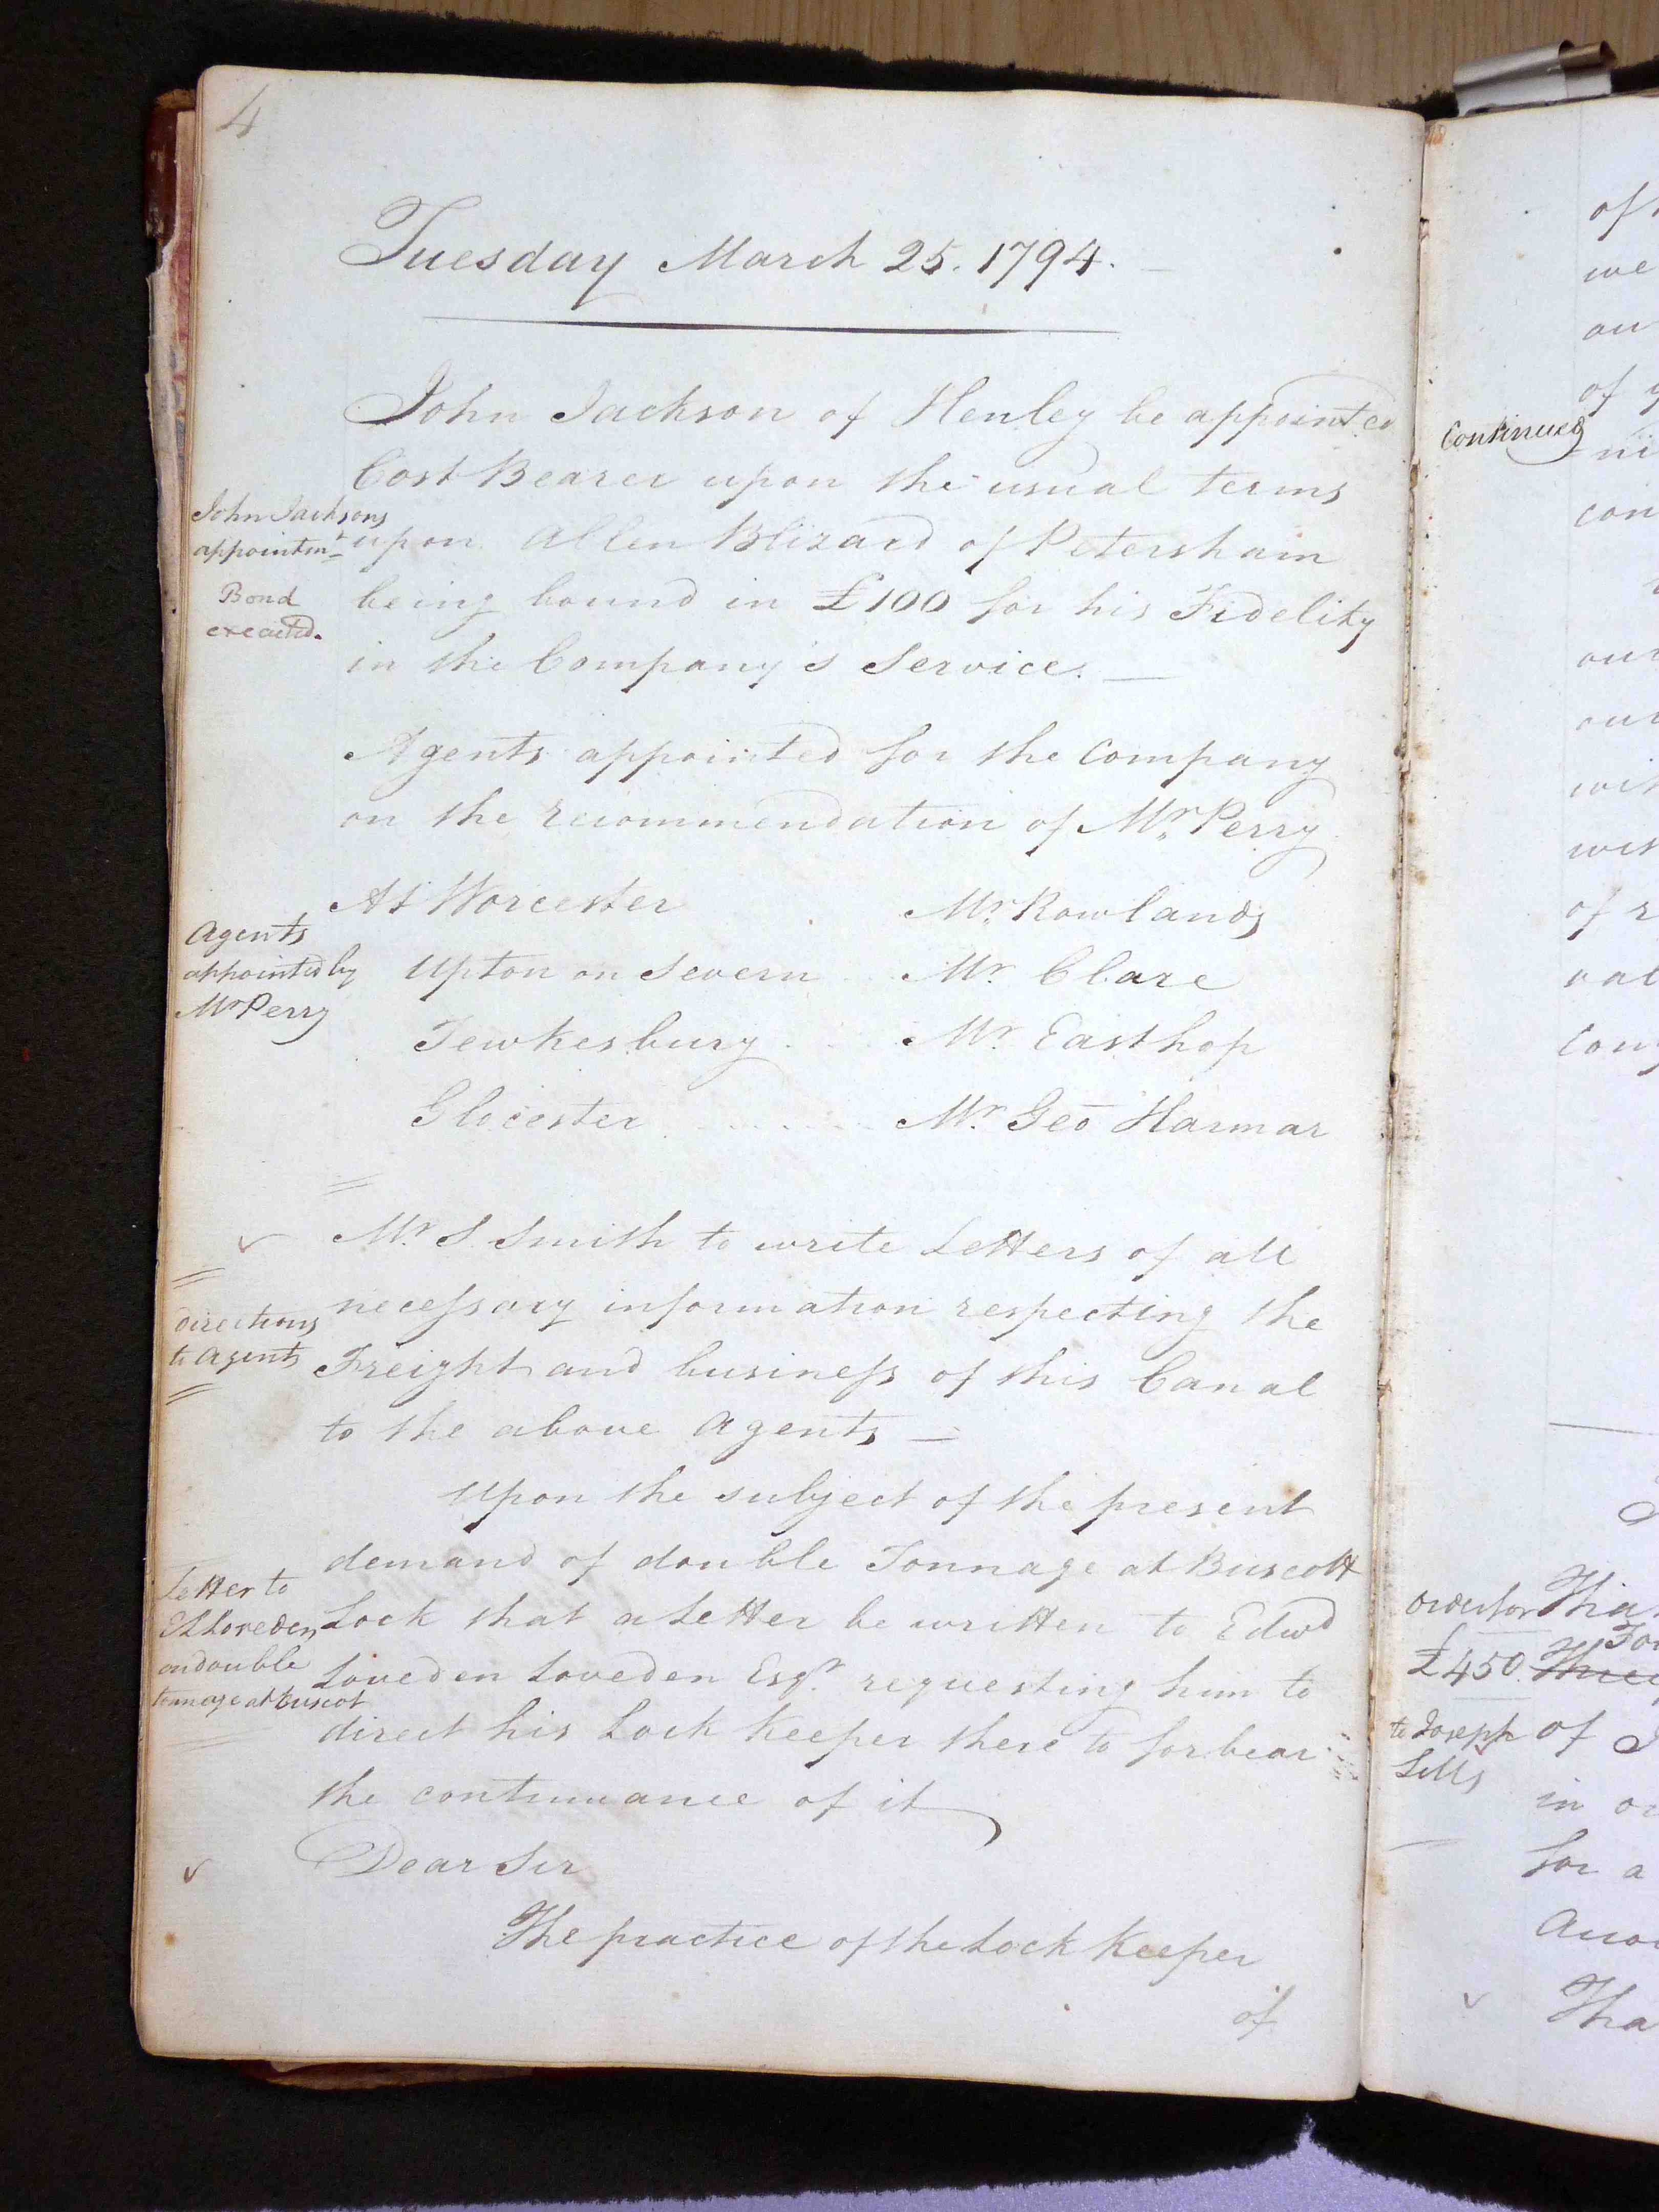 4
Tuesday March 25. 1794.
John Jackson of Henley be appointed
Cost Bearer upon the usual terms
John Jacksons
appointmt
upon Allen Blizard of Petersham
Bond
executed.
being bound in £100 for his Fidelity
in the Company's Service. —
Agents appointed for the Company
on the recommendation of Mr. Perry
At Worcester Mr. Rowlands
Agents
appointed by
Mr Perry
Upton on Severn Mr. Clare
Tewkesbury Mr. Easthop
Glocester Mr. Geo Harmar
Mr. S Smith to write Letters of all
directions
to Agents
necessary information respecting the
Freight and business of this Canal
to the above Agents —
Upon the subject of the present
demand of double Tonnage at Buscott
Letter to
E L Loveden
on double
tonnage at Buscot
Lock that a Letter be written to Edwd
Loveden Loveden Esqr. requesting him to
direct his Lock Keeper there to forbear
the continuance of it
Dear Sir
The practice of the Lock Keeper
of
of
we
ou
of y
Continued
ni
con
our
our
wit
wit
of r
val
Order for
£450.
to Joseph
Sills
Tha
of
in or
for a
Tha